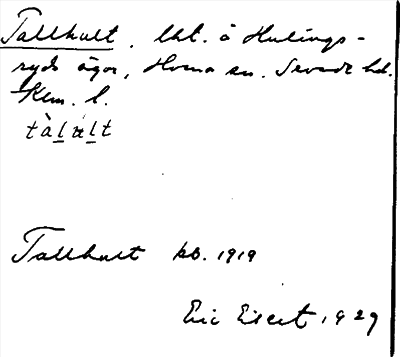 Tallhult. lht. å Hulings-
ryds ägor, Horna sn. Sevede hd.
Klm. l.
tàlúlt
Tallhult kb. 1919
Eric Elgert 1929